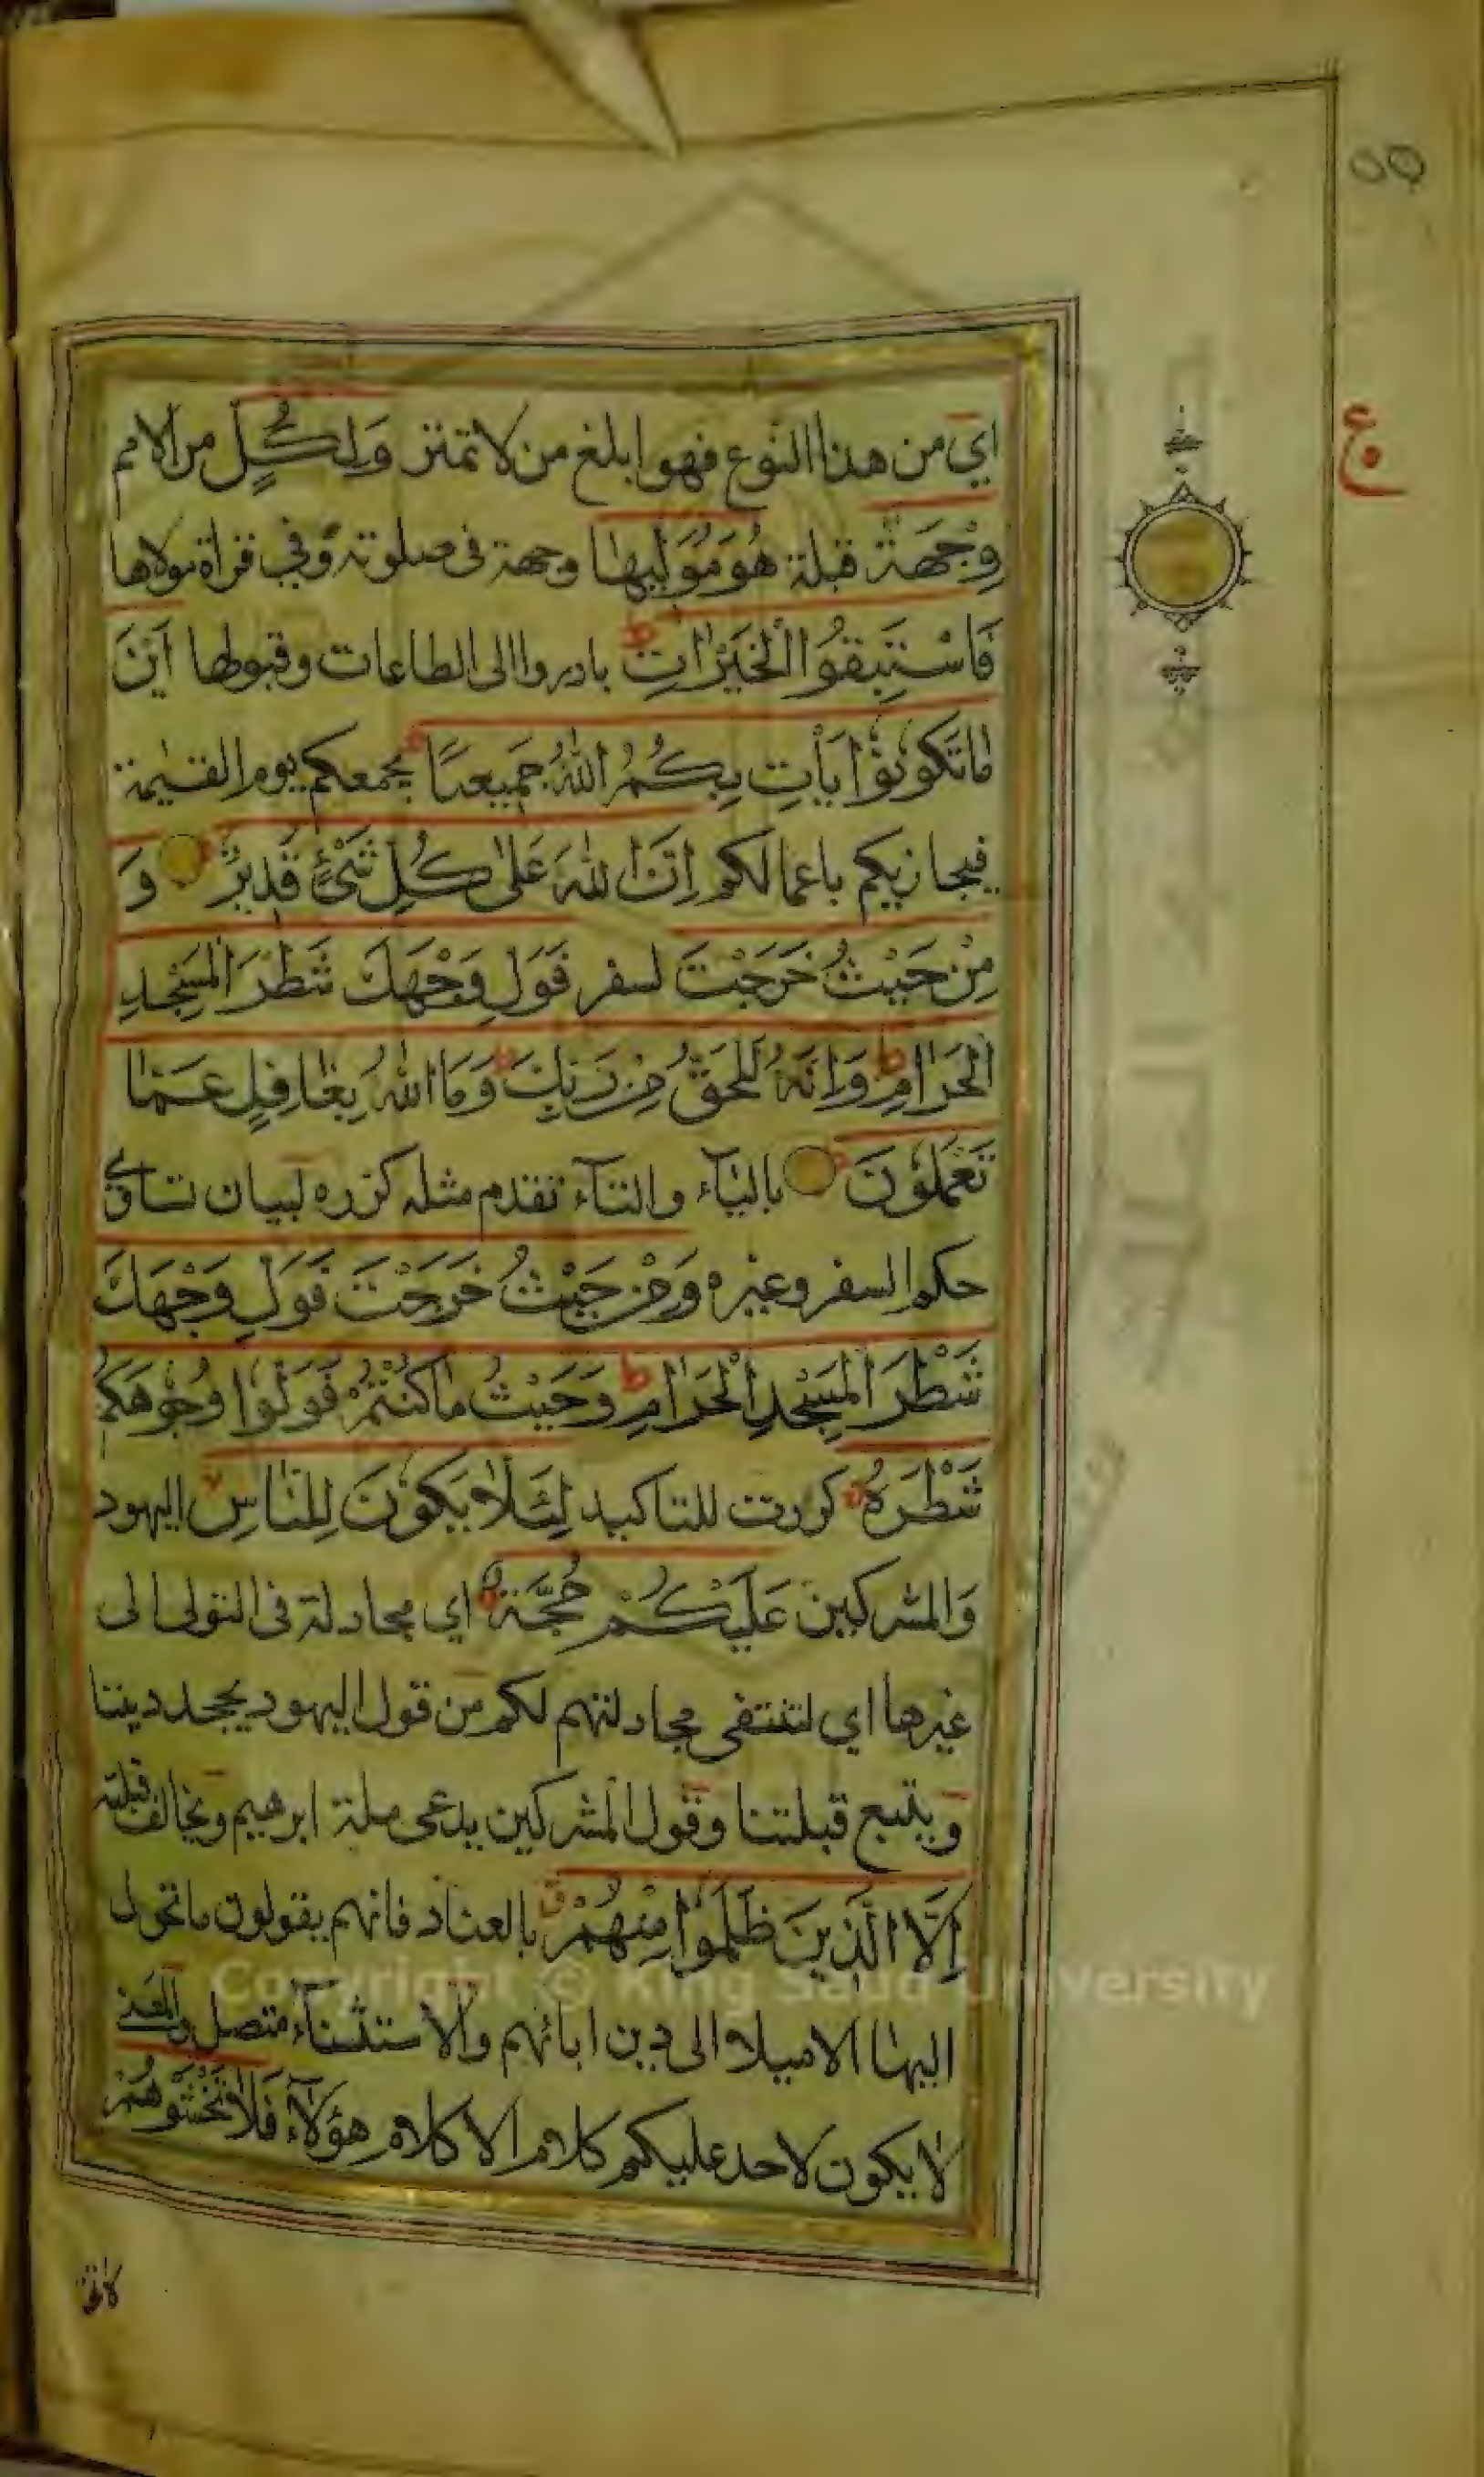 ٥٥
ع
اي من هذا النوع فهو ابلغ من لا تمتر وَلِكُلٍّ من الامم
وِجْهَةٌ قبلة هُوَ مُوَلِّيهَا وجهة فى صلوته وفي قراة مولاها
فَاسْتَبِقُوا الْخَيْرَاتِ ط بادروا الى الطاعات وقبولها اَيْنَ
مَا تَكُونُوْا يَأْتِ بِكُمُ اللّٰهُ جَمِيعًا يجمعكم يوم القيٰمة
فيجازيكم باعمالكم اِنَّ اللّٰهَ عَلٰى كُلِّ شَىْءٍ قَدِيرٌ وَ
مِنْ حَيْثُ خَرَجْتَ لسفر فَوَلِّ وَجْهَكَ شَطْرَ الْمَسْجِدِ
الْحَرَامِ ط وَاِنَّهُ لَلْحَقُّ مِنْ رَبِّكَ ط وَمَا اللّٰهُ بِغَافِلٍ عَمَّا
تَعْمَلُوْنَ بالياء والتاء تقدم مثله كرره لبيان تساوي
حكم السفر وغيره وَمِنْ حَيْثُ خَرَجْتَ فَوَلِّ وَجْهَكَ
شَطْرَ الْمَسْجِدِ الْحَرَامِ ط وَحَيْثُ مَا كُنْتُمْ فَوَلُّوا وُجُوهَكُمْ
شَطْرَهُ كررت للتاكيد لِئَلَّا يَكُوْنَ لِلنَّاسِ اليهود
وَالمشركين عَلَيْكُمْ حُجَّةٌ اي مجادلة فى التولى الى
غيرها اي لتنتفى مجادلتهم لكم من قول اليهود يجحد ديننا
ويتبع قبلتنا وقول المشركين يدعى ملة ابرهيم ويخالف قبلته
اِلَّا الَّذِينَ ظَلَمُوا مِنْهُمْ ق بالعناد فانهم يقولون ما تحول
اليها الا ميلا الى دين ابائهم والاستثناء متصل والمعنى
لا يكون لاحد عليكم كلام الا كلام هؤلاء فَلَا تَخْشَوْهُمْ
Copyright © King Saud University